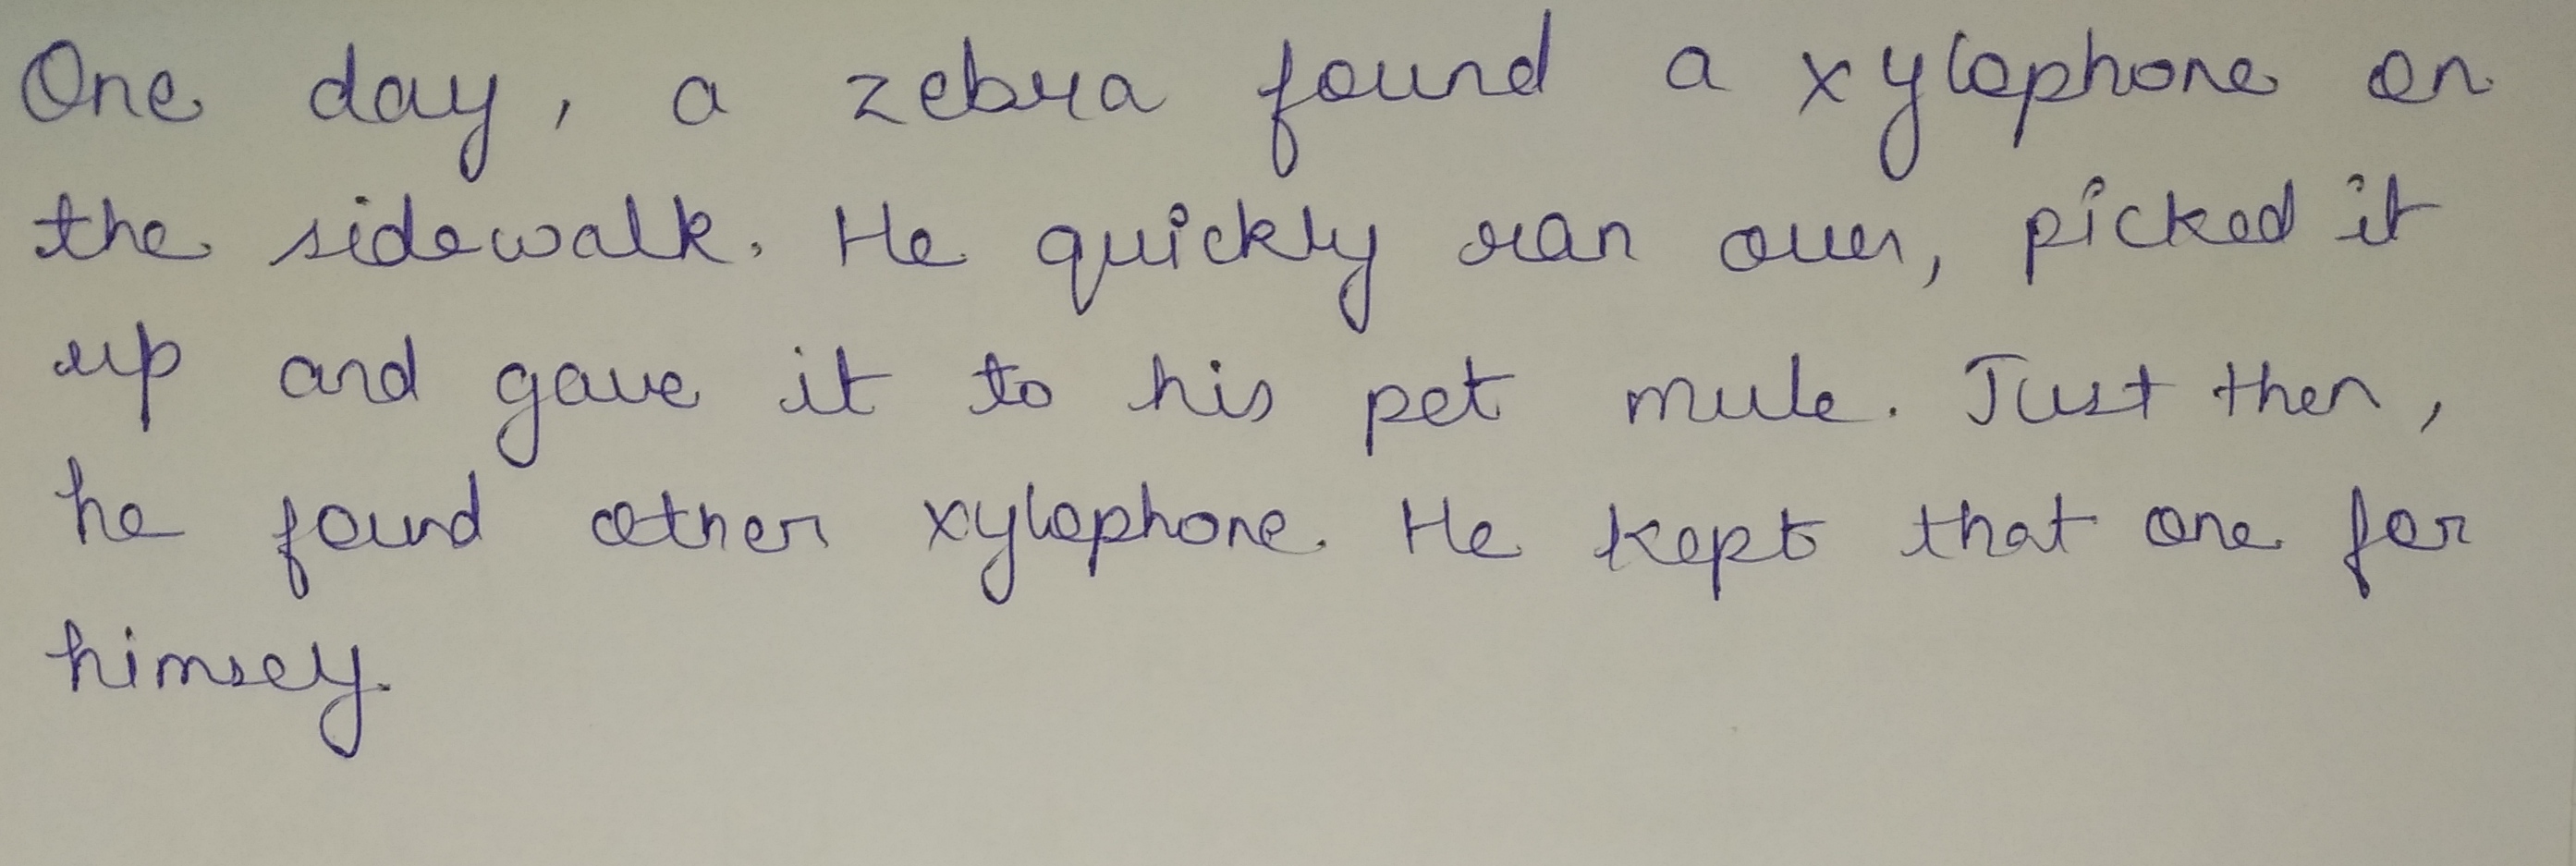 One day, a zebra found a xylophone on
the sidewalk. He quickly ran over, picked it
up and gave it to his pet mule. Just then,
he found other xylophone. He kept that one for
himself.